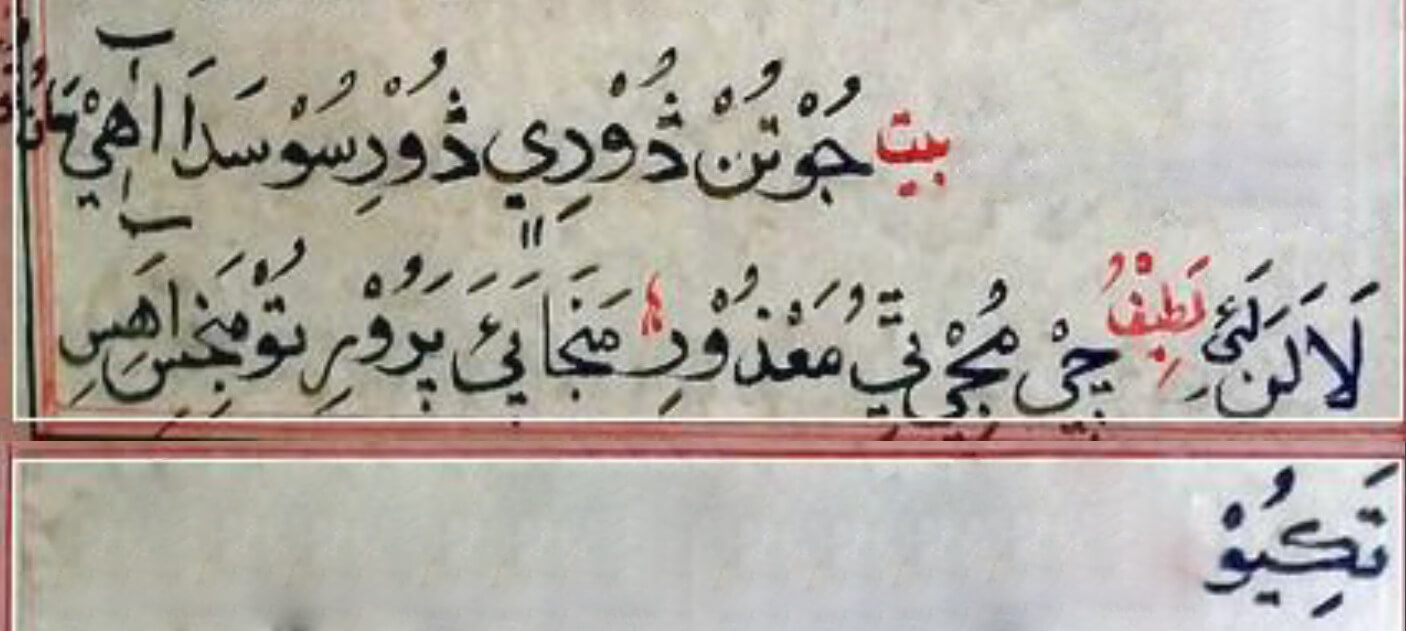 بيت جُوْ تُنْ ڎُوْرِيْ ڎُوْرِ سُوْ سَدَا آهِيْ سَانُ
لَالَنَ لَئَي لَطِيْفُ چِيْ مُجِيْ تِيَّ مَعْذُوْرِ مَنجَا پِئَيَ پَرُوْرِ تُوْ مَنجِسِ آهِسِ
تَڪِيُوْ